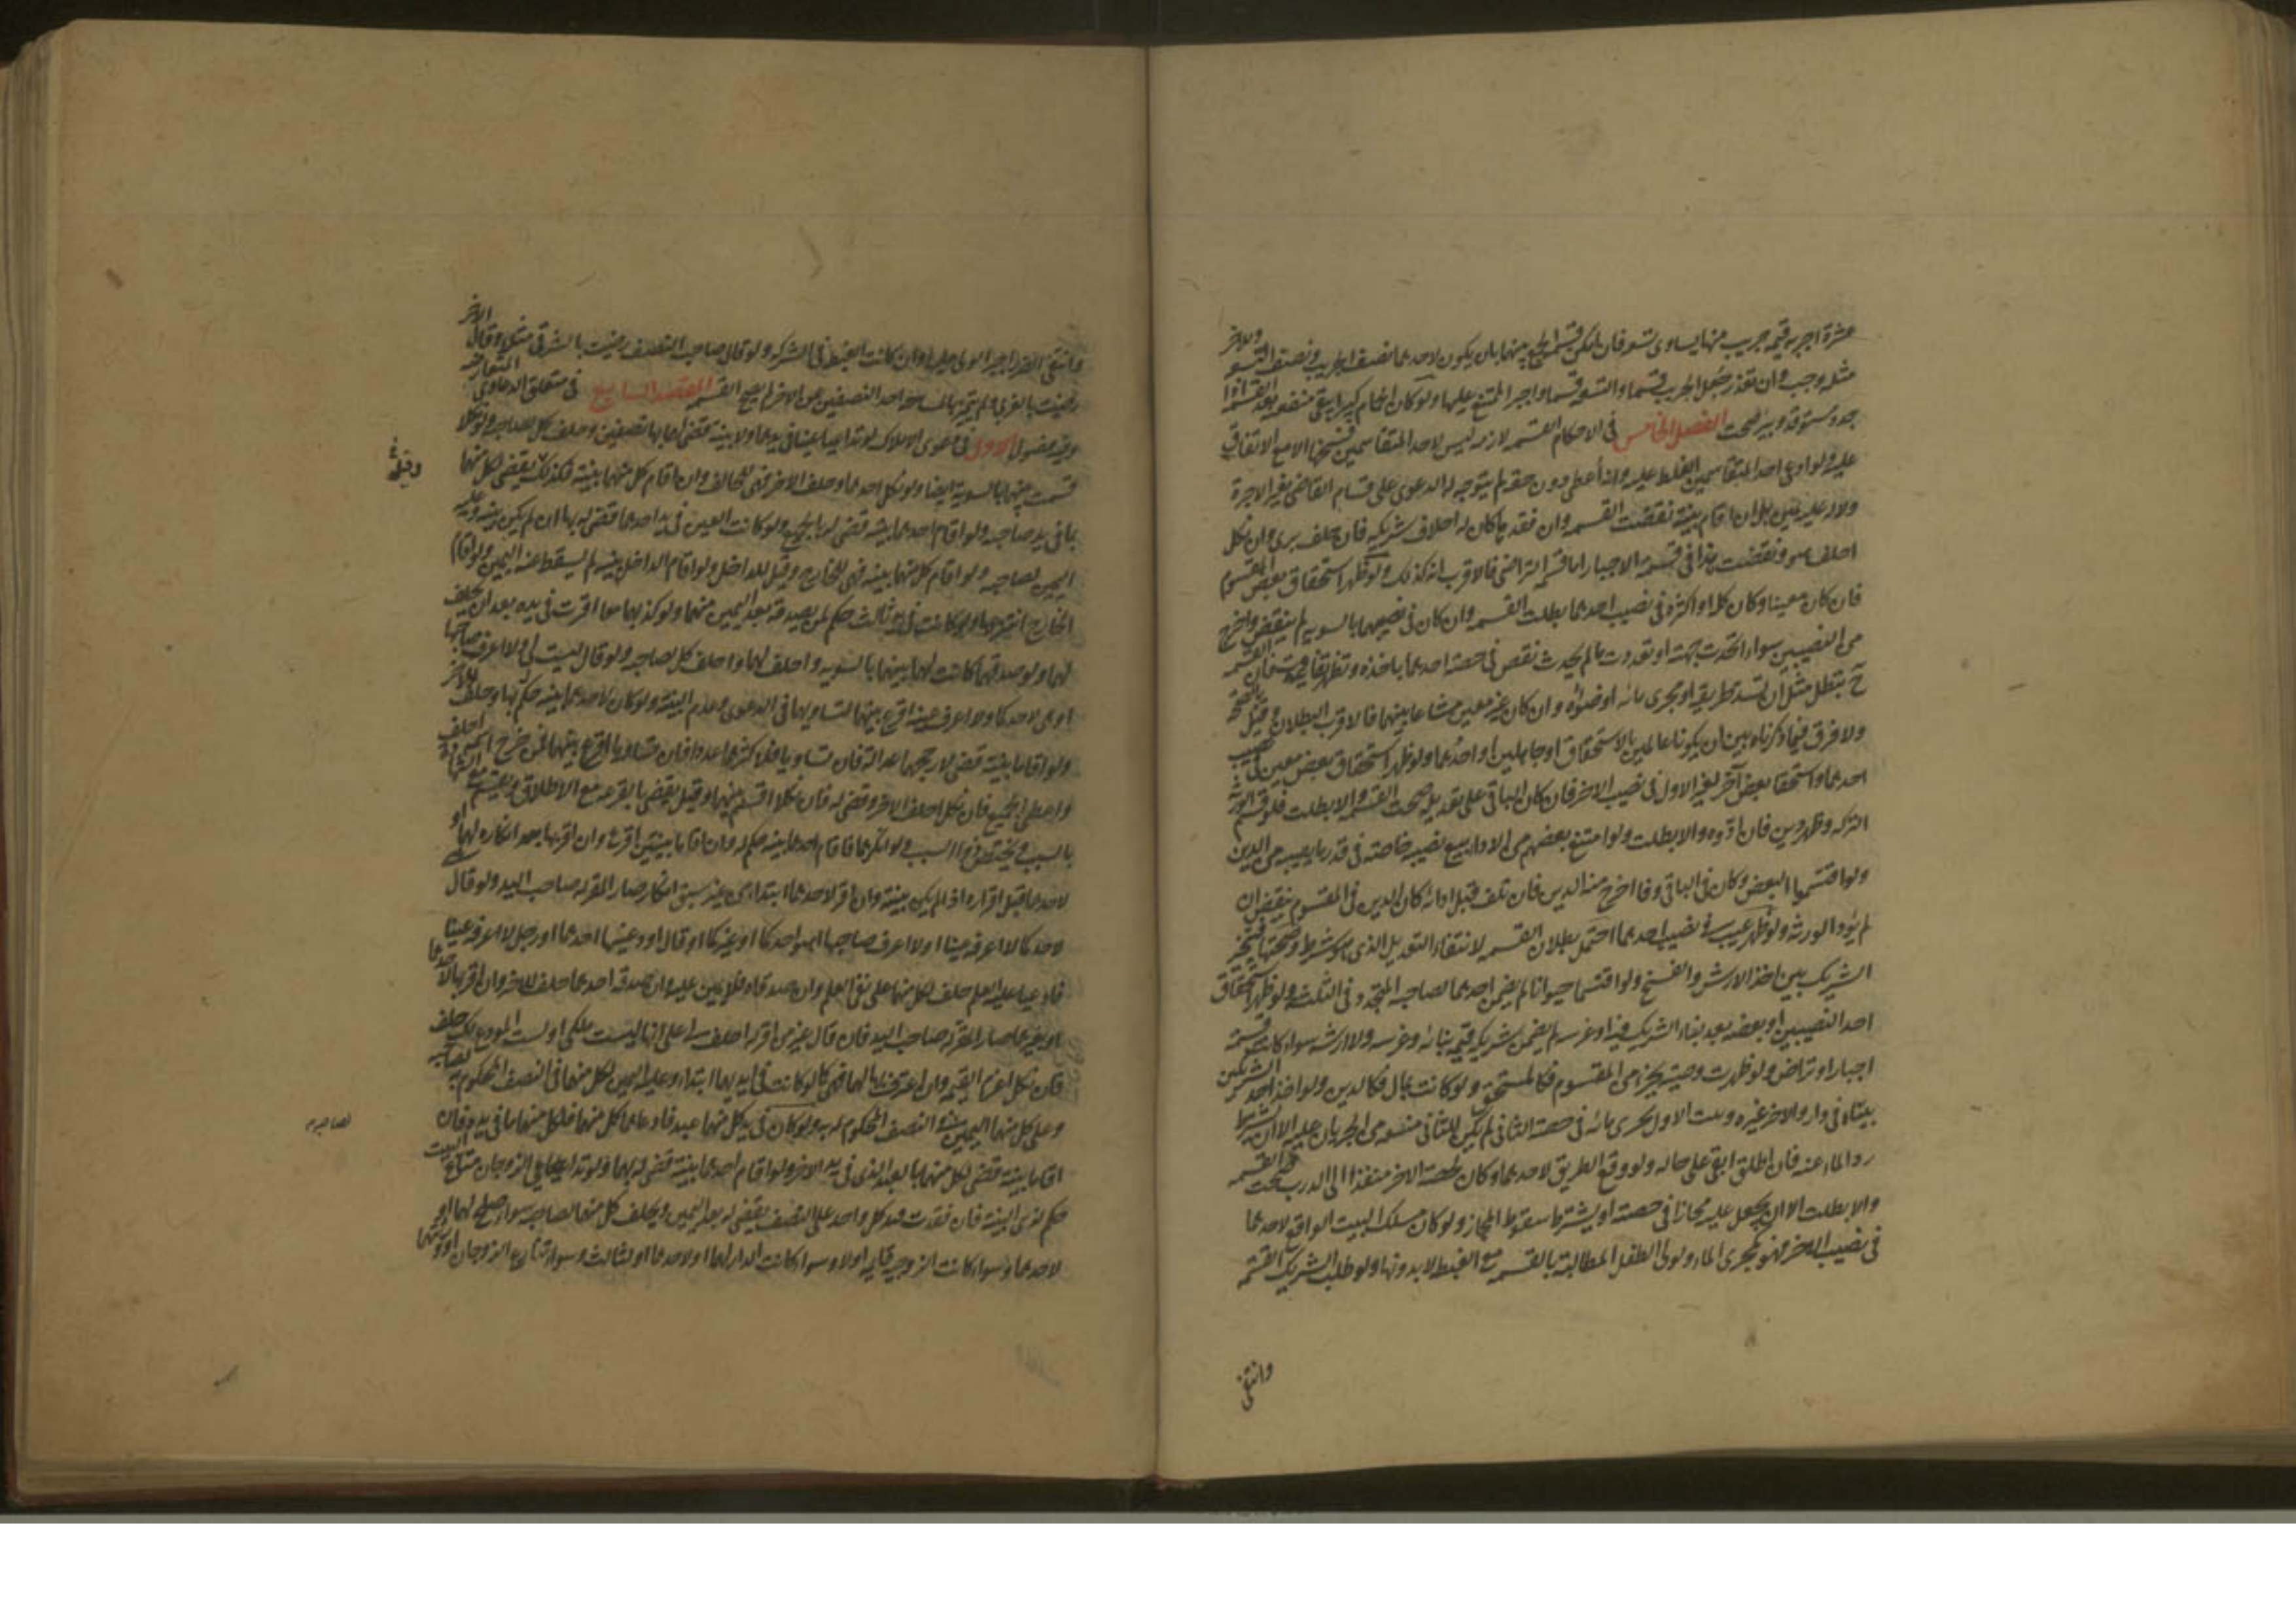 عشرة اجربة قيمة جريب منها يساوى تسعة فان امكن قسمة الجميع بينهما بان يكون لاحدهما نصف الجريب ونصف التسعة وللاخر
مثله وجب وان تعذر جعل الجريب قسما والتسعة قسما واجبر الممتنع عليها ولو كان الحمام كبيرا يبقى منفعته بعد القسمة اذا
جدد مستوقد وبئر صحت الفصل الخامس فى الاحكام القسمة لازمة ليس لاحد المتقاسمين فسخها الا مع الاتفاق
عليه ولو ادعى احد المتقاسمين الغلط عليه وانه أعطى دون حقه لم يتوجه له الدعوى على قسام القاضى بغير الاجرة
ولا له عليه يمين بل ان اقام بينة نقضت القسمة وان فقدها كان له احلاف شريكه فان حلف برئ وان نكل
احلف هو ونقضت هذا فى قسمة الاجبار اما قسمة التراضى فالاقرب انه كذلك ولو ظهر استحقاق بعض المقسوم
فان كان معينا وكان كله او اكثره فى نصيب احدهما بطلت القسمة وان كان فى نصيبهما بالسوية لم ينقض واخرج
من النصيبين سواء اتحدت جهته او تعددت ما لم يحدث نقص فى حصة احدهما باخذه وتظهر تفاوت فان القسمة
ح تبطل مثل ان تسد طريقه او مجرى مائه او ضوئه وان كان غير معين مشاعا بينهما فالاقرب البطلان وقيل بالصحة
ولا فرق فيما ذكرناه بين ان يكونا عالمين بالاستحقاق او جاهلين او احدهما ولو ظهر استحقاق بعض معين فى نصيب
احدهما واستحقاق بعض آخر لغير الاول فى نصيب الاخر فان كان الباقى على تعديله صحت القسمة والا بطلت فلو قسم الورثة
التركة وظهر دين فان ادوه والا بطلت ولو امتنع بعضهم من الاداء بيع نصيبه خاصة فى قدر ما يصيبه من الدين
ولو اقتسموا البعض وكان فى الباقى وفاء اخرج منه الدين فان تلف قبل ادائه كان الدين فى المقسوم ينقض ان
لم يؤد الورثة ولو ظهر عيب فى نصيب احدهما احتمل بطلان القسمة لانتفاء التعديل الذى هو شرط وصحتها فيتخير
الشريك بين اخذ الارش والفسخ ولو اقتسما حيوانا لم يضمن احدهما لصاحبه المتجدد فى الثلثة ولو ظهر استحقاق
احد النصيبين او بعضه بعد بناء الشريك فيه او غرسه لم يضمن شريكه قيمة بنائه وغرسه ولا ارشه سواء كانت قسمة
اجبار او تراض ولو ظهرت وصية بجزء من المقسوم فكالمستحق ولو كانت بمال فكالدين ولو اخذ احد الشريكين
بيتا فى دار والاخر غيره وبيت الاول يجرى مائه فى حصة الثانى لم يكن للثانى منعه من الجريان عليه الا ان يشترط
رد الماء عنه فان اطلق ابقى على حاله ولو وقع الطريق لاحدهما وكان لحصة الاخر منفذا الى الدرب صحت القسمة
والا بطلت الا ان يجعل عليه مجازا فى حصته او يشترط سقوط المجاز ولو كان مسلك البيت الواقع لاحدهما
فى نصيب الاخر فهو كمجرى الماء ولولى الطفل المطالبة بالقسمة مع الغبطة لا بدونها ولو طلب الشريك القسمة
وانتفى
وانتفى الضرر اجبر الولى عليها وان كانت الغبطة فى الشركة ولو قال صاحب النصف رضيت بالشرقى مثلا وقال الاخر
رضيت بالغربى ولم يتميز بالمساحة احد النصفين من الاخر لم يصح القسمة المقصد السابع فى متعلق الدعاوى المتعارضة
وفيه فصول الاول فى دعوى الاملاك لو تداعيا عينا فى يدهما ولا بينة قضى لهما بها نصفين وحلف كل لصاحبه ولو نكلا
قسمت بينهما بالسوية ايضا ولو نكل احدهما وحلف الاخر فهى للحالف وان اقام كل منهما بينة فكذلك يقضى لكل منهما
بما فى يد صاحبه ولو اقام احدهما بينة قضى له بالجميع ولو كانت العين فى يد احدهما قضى له بها ان لم يكن بينة وعليه
اليمين لصاحبه ولو اقام كل منهما بينة فهى للخارج وقيل للداخل ولو اقام الداخل بينة لم يسقط عنه اليمين ولو اقام
الخارج انتزعها ولو كانت فى يد ثالث حكم لمن يصدقه بعد اليمين منهما ولو كذبهما معا اقرت فى يده بعد ان يحلف
لهما ولو صدقهما كانت لهما بينهما بالسوية واحلف لهما واحلف كل لصاحبه ولو قال ليست لى ولا اعرف صاحبها
او هى لاحدكما ولا اعرف عينه اقرع بينهما لتساويهما فى الدعوى وعدم البينة ولو كان لاحدهما بينة حكم بها وحلف للاخر
ولو اقاما بينة قضى لارجحهما عدالة فان تساويا فلاكثرهما عددا فان تساويا اقرع بينهما فمن خرج اسمه احلف
واعطى الجميع فان نكل احلف الاخر وقضى له فان نكلا اقتسم بينهما وقيل يقضى بالقرعة مع الاطلاق ويقسم مع الشهادة
بالسبب ويختص ذوا السبب ولو انكرهما فاقام احدهما بينة حكم له وان اقاما بينتين اقرع وان اقر بها بعد انكاره لهما او
لاحدهما قبل اقراره اذا لم يكن بينة وان اقر لاحدهما ابتداء من غير سبق انكار صار المقر له صاحب اليد ولو قال هى
لاحدكما لا اعرفه عينا او لا اعرف صاحبها اهو احدكما او غيركما او قال اودعنيها احدهما او رجل لا اعرفه عينا
فادعيا عليه العلم حلف لكل منهما على نفى العلم وان صدقاه فلا يمين عليه وان صدقه احدهما حلف للاخر وان اقر بها لاحدهما
او لغيرهما صار المقر له صاحب اليد فان قال غير من اقر له احلف لى على انها ليست ملكى او لست المودع لك حلف
فان نكل اغرم القيمة وان اعترف بها لهما فهى كما لو كانت فى ايديهما ابتداء وعليه اليمين لكل منهما فى النصف المحكوم به لصاحبه
وعلى كل منهما اليمين فى النصف المحكوم له به ولو كان فى يد كل منهما عبد فادعاهما كل منهما فلكل منهما ما فى يده فان
اقاما بينة قضى لكل منهما بالعبد الذى فى يد الاخر ولو اقام احدهما بينة قضى له بهما ولو تداعى الزوجان متاع البيت
حكم لذى البينة فان فقدت فيد كل واحد على النصف يقضى له بعد اليمين ويحلف كل منهما لصاحبه سواء صلح لهما او
لاحدهما وسواء كانت الزوجية قائمة اولا وسواء كانت الدار لهما او لاحدهما او لثالث وسواء تنازع الزوجان او ورثتهما
لصاحبه